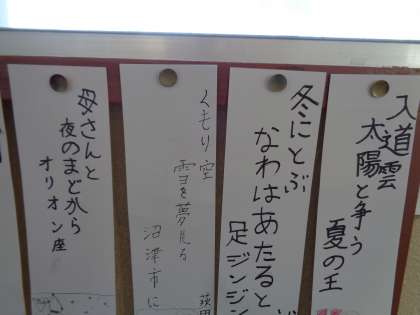 入道雲
太陽と争う
夏の王
冬にとぶ
なわはあたると
足ジンジン
くもり空
雪を夢見る
沼津市に
母さんと
夜のまどから
オリオン座